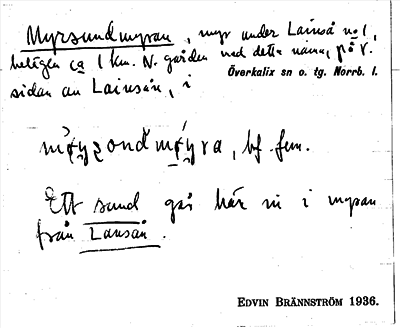 Myrsundmyran, myr under Lainså no 1,
belägen ca 1 km. N. gården med detta namn, på v.
Överkalix sn o. tg. Norrb. l.
sidan av Lainsån, i
bf. fem.
Ett sund går här in i myran
från Lansån.
EDVIN BRÄNNSTRÖM 1936.